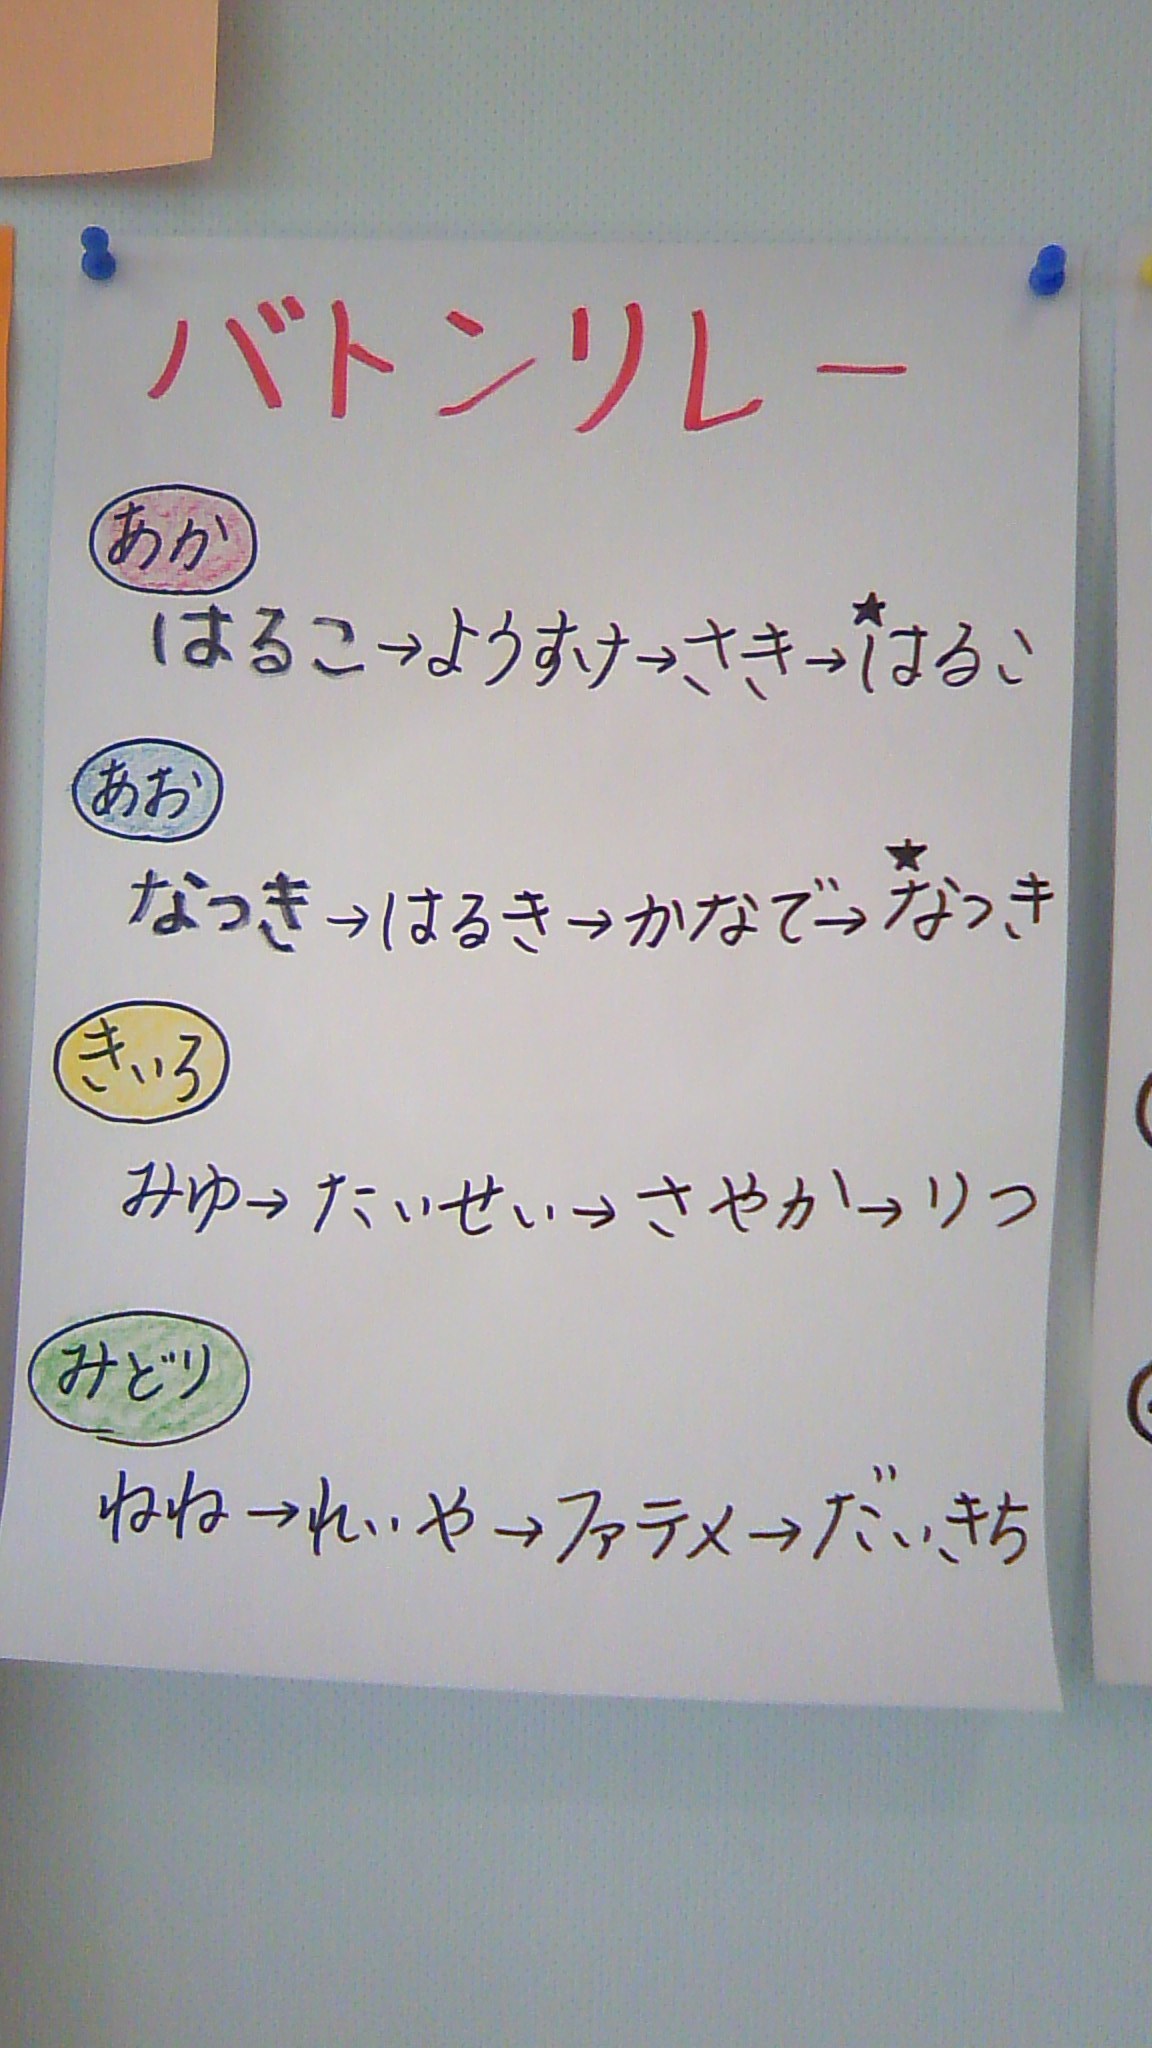 バトンリレー
あか
はるこ→ようすけ→さき→★はるこ
あお
なつき→はるき→かなで→★なつき
きいろ
みゆ→たいせい→さやか→りつ
みどり
ねね→れいや→ファテメ→だいきち